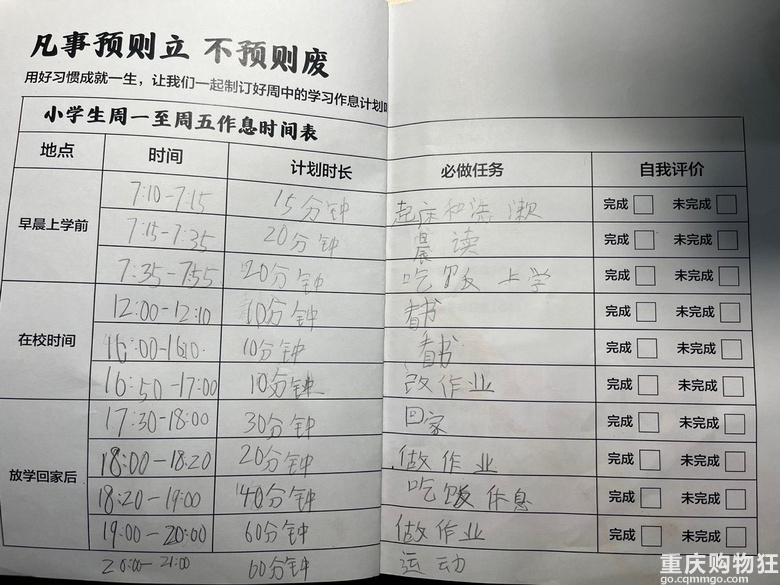 凡事预则立 不预则废
用好习惯成就一生，让我们一起制订好周中的学习作息计划
小学生周一至周五作息时间表
地点 时间 计划时长 必做任务 自我评价
早晨上学前 7:10-7:15 15分钟 起床和洗漱 完成 未完成
7:15-7:35 20分钟 晨读 完成 未完成
7:35-7:55 20分钟 吃饭 上学 完成 未完成
在校时间 12:00-12:10 10分钟 看书 完成 未完成
16:00-16:10 10分钟 看书 完成 未完成
16:50-17:00 10分钟 改作业 完成 未完成
放学回家后 17:30-18:00 30分钟 回家 完成 未完成
18:00-18:20 20分钟 做作业 完成 未完成
18:20-19:00 40分钟 吃饭作息 完成 未完成
19:00-20:00 60分钟 做作业 完成 未完成
20:00-21:00 60分钟 运动
重庆购物狂
go.cqmmgo.com